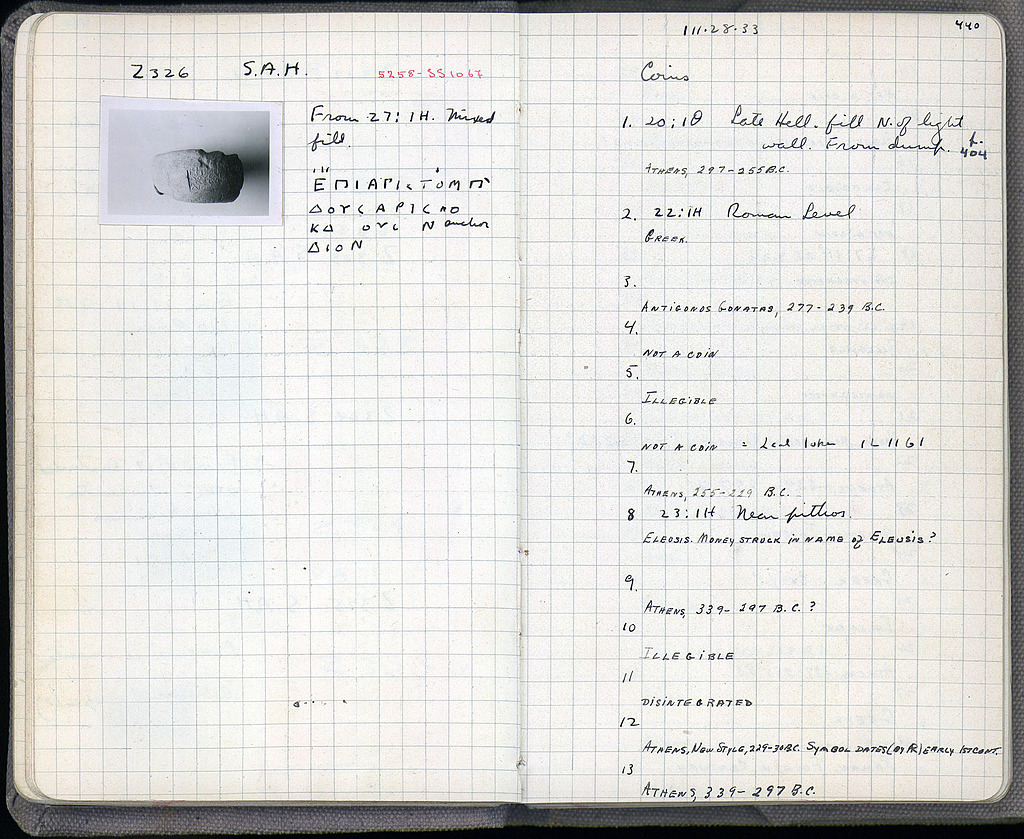 Z326 S.A.H. 5258-SS1067
From 27:1H. Mixed
fill.
ΕΠΙΑΡΙϹΤΟΜΠ
ΔΟΥϹΑΡΙϹΝΟ
ΚΔ ΟΥϹ Ν anchor
ΔΙΟΝ
440
111.28.33
Coins
1. 20:1Θ Late Hell. fill N. of light
wall. From dump. p. 404
ATHENS, 297-255 B.C.
2. 22:1H Roman Level
GREEK.
3.
ANTIGONOS GONATAS, 277-239 B.C.
4.
NOT A COIN
5.
ILLEGIBLE
6.
NOT A COIN = Lead token IL 1161
7.
ATHENS, 255-229 B.C.
8 23:1H Near pithos.
ELEUSIS. MONEY STRUCK IN NAME OF ELEUSIS?
9.
ATHENS, 339-297 B.C.?
10
ILLEGIBLE
11
DISINTEGRATED
12
ATHENS, NEW STYLE, 229-30 B.C. SYMBOL DATES (BY AR) EARLY 1ST CENT.
13
ATHENS, 339-297 B.C.